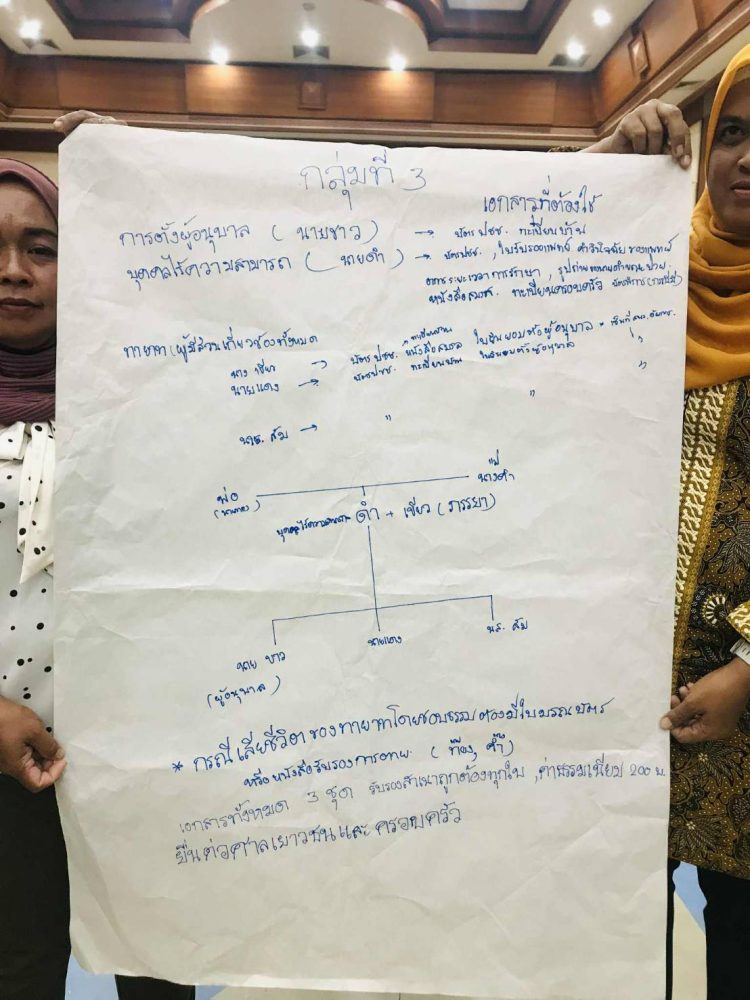 กลุ่มที่ 3
เอกสารที่ต้องใช้
การตั้งผู้อนุบาล ( นายขาว ) → บัตร ปชช. ทะเบียนบ้าน
บุคคลไร้ความสามารถ ( นายดำ ) → บัตรปชช. , ใบรับรองแพทย์
ระยะเวลาการรักษา , รูปถ่าย
หนังสือสมรส. ทะเบียนครอบครัว
ทายาท/ผู้มีส่วนเกี่ยวข้องทั้งหมด
นาง เขียว → บัตร ปชช. หนังสือสมรส ใบยินยอมตั้งผู้อนุบาล
นายแดง → บัตร ปชช. ทะเบียนบ้าน ใบยินยอมตั้งผู้อนุบาล "
นส. ส้ม → " " "
พ่อ
แม่
ดำ + เขียว ( ภรรยา )
นาย ขาว
(ผู้อนุบาล)
นายแดง
น.ส. ส้ม
* กรณีเสียชีวิตของทายาทโดยชอบธรรมต้องมีใบมรณบัตร
หรือหนังสือรับรองการตาย.
เอกสารทั้งหมด 3 ชุด รับรองสำเนาถูกต้องทุกใบ , ค่าธรรมเนียม 200 บ.
ยื่นต่อศาลเยาวชนและครอบครัว